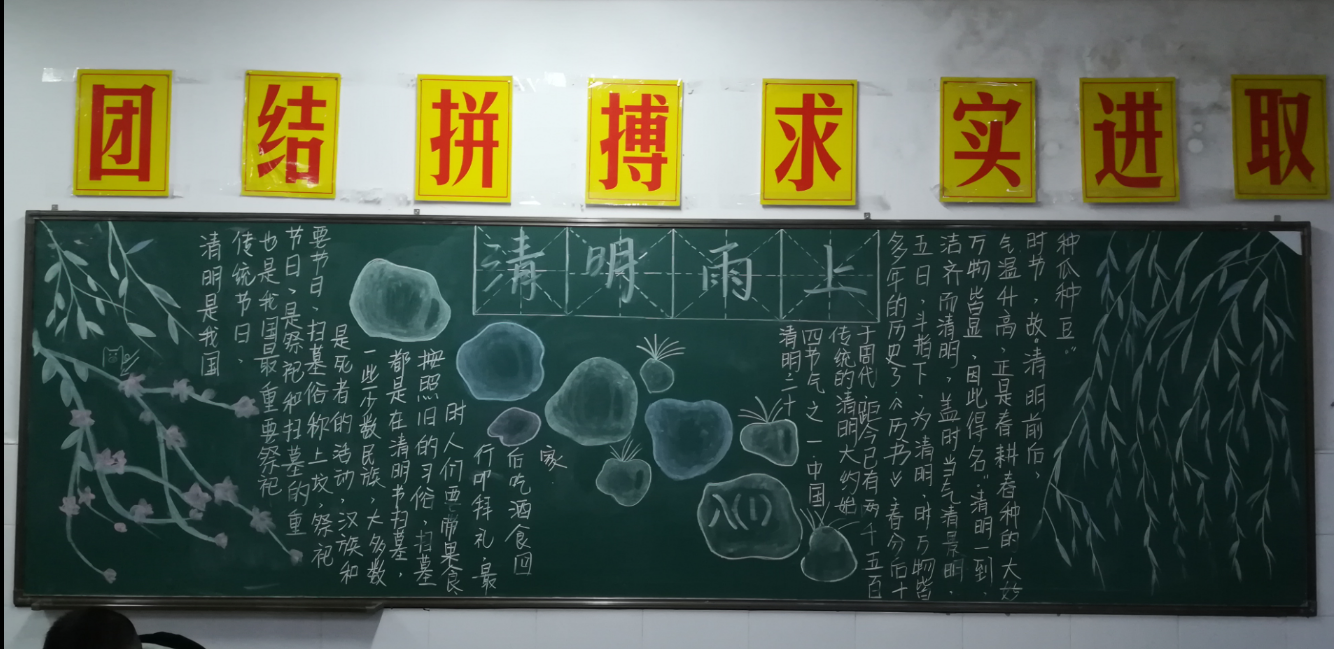 团结拼搏求实进取
清明雨上
清明是我国
传统节日、
也是我国最重要祭祀
节日、是祭祀和扫墓的重
要节日、扫墓俗称上坟,祭祀
是死者的活动,汉族和
一些少数民族,大多数
都是在清明书扫墓,
按照旧的习俗,扫墓
时人们要带果食
行叩拜礼,最
后吃酒食回
家.
八(1)
清明二十
四节气之一,中国
传统的清明大约始
于周代,距今已有两千五百
多年的历史《历书》,春分后十
五日,斗指下,为清明,时万物皆
洁齐而清明,盖时当气清景明,
万物皆显,因此得名。"清明一到,
气温升高,正是春耕春种的大好
时节,故"清明前后、
种瓜种豆"